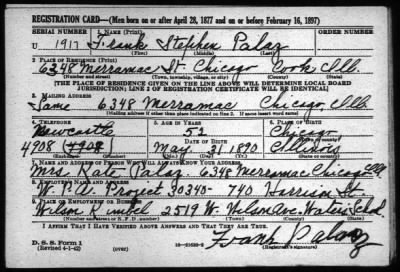 REGISTRATION CARD—(Men born on or after April 28, 1877 and on or before February 16, 1897)
SERIAL NUMBER 1. NAME (Print) ORDER NUMBER
U 1917 Frank Stephen Palaz
(First) (Middle) (Last)
2. PLACE OF RESIDENCE (Print)
6348 Merramac St. Chicago Cook Ill.
(Number and street) (Town, township, village, or city) (County) (State)
[THE PLACE OF RESIDENCE GIVEN ON THE LINE ABOVE WILL DETERMINE LOCAL BOARD
JURISDICTION; LINE 2 OF REGISTRATION CERTIFICATE WILL BE IDENTICAL]
3. MAILING ADDRESS
Same 6348 Merramac Chicago Ill.
(Mailing address if other than place indicated on line 2. If same insert word same)
4. TELEPHONE 5. AGE IN YEARS 6. PLACE OF BIRTH
Newcastle 52 Chicago
DATE OF BIRTH (Town or county)
4908 May 31 1890 Illinois
(Exchange) (Number) (Mo.) (Day) (Yr.) (State or country)
7. NAME AND ADDRESS OF PERSON WHO WILL ALWAYS KNOW YOUR ADDRESS
Mrs. Kate Palaz 6348 Merramac Chicago Ill
8. EMPLOYER'S NAME AND ADDRESS
W.P.A. Project 30340- 740 Harrison St.
9. PLACE OF EMPLOYMENT OR BUSINESS
2519 W. Wilson Ave.
(Number and street or R. F. D. number) (Town) (County) (State)
I AFFIRM THAT I HAVE VERIFIED ABOVE ANSWERS AND THAT THEY ARE TRUE.
D. S. S. Form 1
(Revised 4-1-42) (over) Frank Palaz
(Registrant's signature)